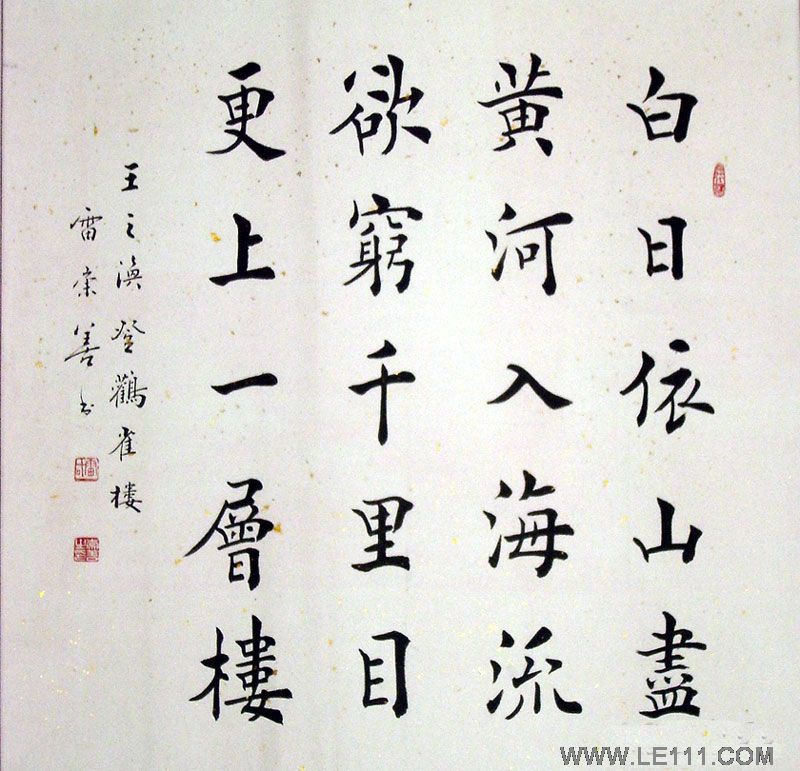 白日依山盡
黄河入海流
欲窮千里目
更上一層樓
王之渙登鸛雀樓
雷崇善书
WWW.LE111.COM